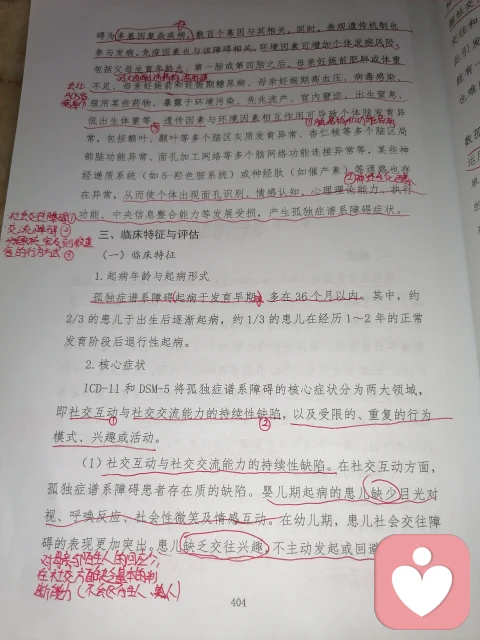 碍为多基因复杂疾病，数百个基因与其相关。同时，表观遗传机制也
参与发病，免疫因素也与该障碍相关。环境因素可增加个体发病风险，
包括父母生育年龄大、第一胎或第四胎之后、母亲妊娠前肥胖或体重
不足、母亲妊娠前和妊娠期糖尿病、母亲妊娠期高血压、病毒感染、
服用某些药物、暴露于环境污染、先兆流产、宫内窘迫、出生窒息、
低出生体重等。遗传因素与环境因素相互作用可导致个体脑发育异
常，包括额叶、颞叶等多个脑区灰质发育异常、杏仁核等多个脑区局
部脑功能异常、面孔加工网络等多个脑网络功能连接异常等，某些神
经递质系统（如5-羟色胺系统）或神经肽（如催产素）等通路也存
在异常，从而使个体出现面孔识别、情感认知、心理理论能力、执行
功能、中央信息整合能力等发展受损，产生孤独症谱系障碍症状。
社会交往障碍①
交流障碍②
三、临床特征与评估
（一）临床特征
1.起病年龄与起病形式
孤独症谱系障碍起病于发育早期，多在36个月以内。其中，约
2/3的患儿于出生后逐渐起病，约1/3的患儿在经历1～2年的正常
发育阶段后退行性起病。
2.核心症状
ICD-11和DSM-5将孤独症谱系障碍的核心症状分为两大领域，
即社交互动与社交交流能力的持续性缺陷，以及受限的、重复的行为
① ②
模式、兴趣或活动。
（1）社交互动与社交交流能力的持续性缺陷。在社交互动方面，
孤独症谱系障碍患者存在质的缺陷。婴儿期起病的患儿缺少目光对
视、呼唤反应、社会性微笑及情感互动。在幼儿期，患儿社会交往障
碍的表现更加突出。患儿缺乏交往兴趣，不主动发起或回避
在社交方面缺乏基本的判
断能力
404